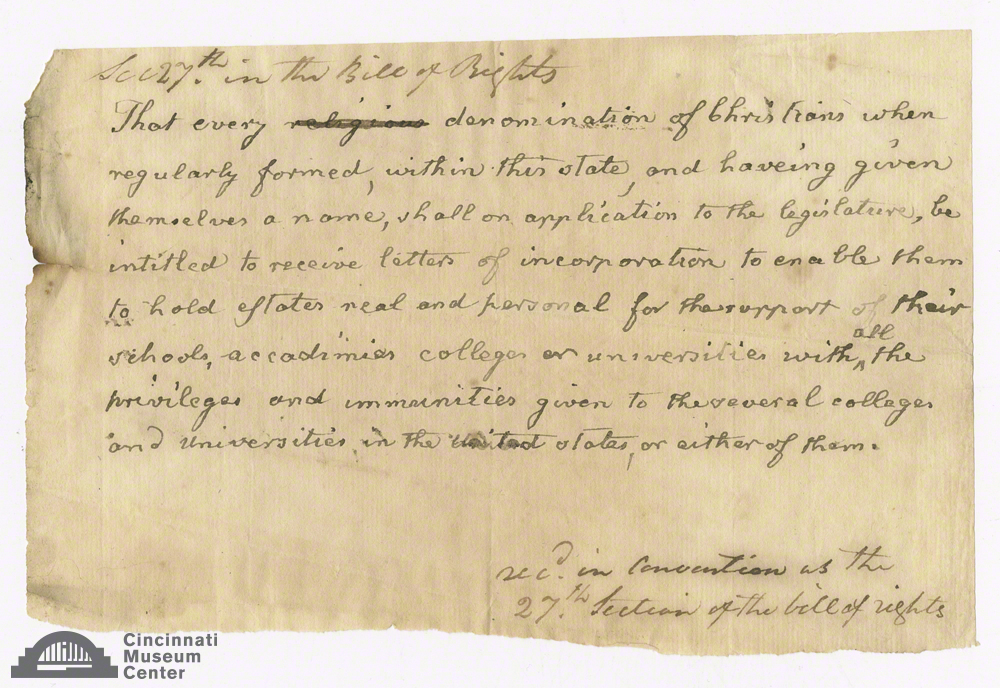 Sec 27.th in the Bill of Rights
That every religious denomination of Christians when
regularly formed, within this state, and haveing given
themselves a name, shall on application to the legislature, be
intitled to receive letters of incorporation to enable them
to hold estates real and personal for the support of their
schools, accadimies colleges or universities with all the
privileges and immunities given to the several colleges
and universities in the united states, or either of them.
rec.d in Convention as the
27.th Section of the bill of rights
Cincinnati
Museum
Center